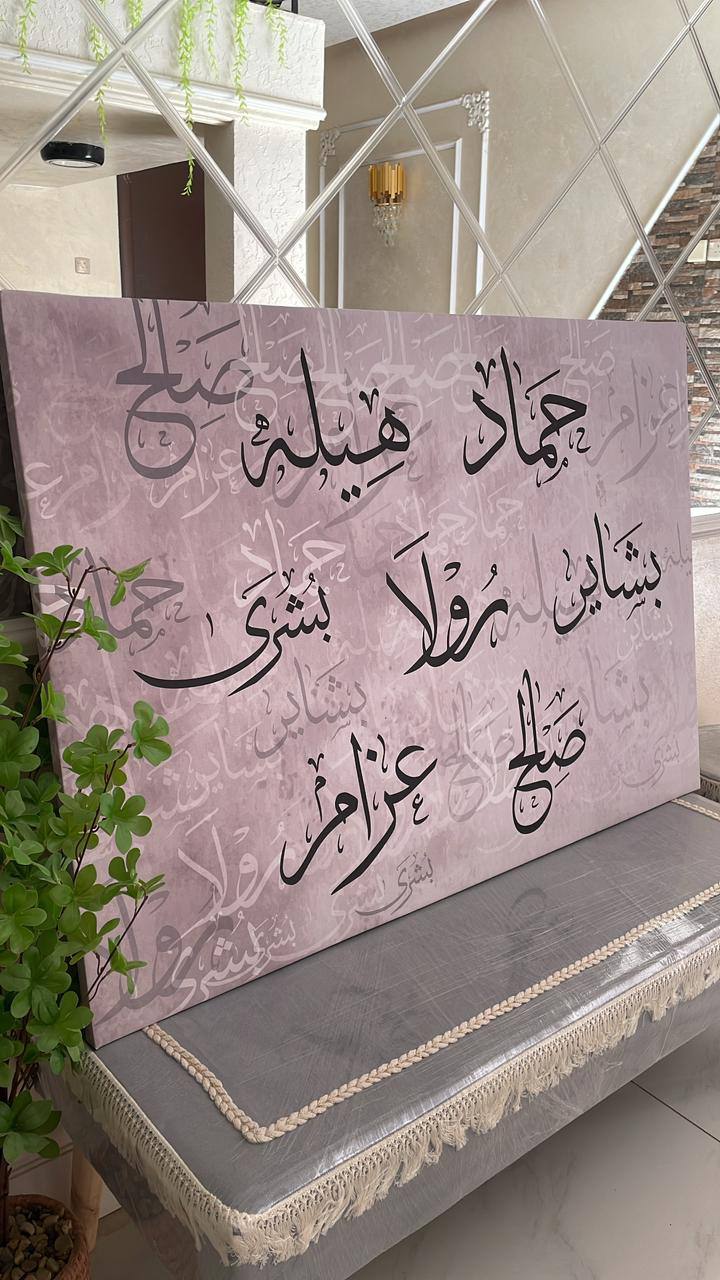 حماد هيله
بشاير رولا بشرى
صالح عزام